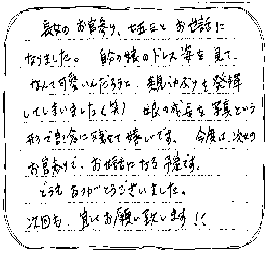 長女のお宮参り、七五三とお世話に
なりました。自分の娘のドレス姿を見て、
なんて可愛いんだろうと、親バカぶりを発揮
してしまいました(笑) 娘の成長を写真という
形で記念に残せて嬉しいです。今度は、次女の
お宮参りで、お世話になる予定です。
どうもありがとうございました。
次回も、宜しくお願い致します!!